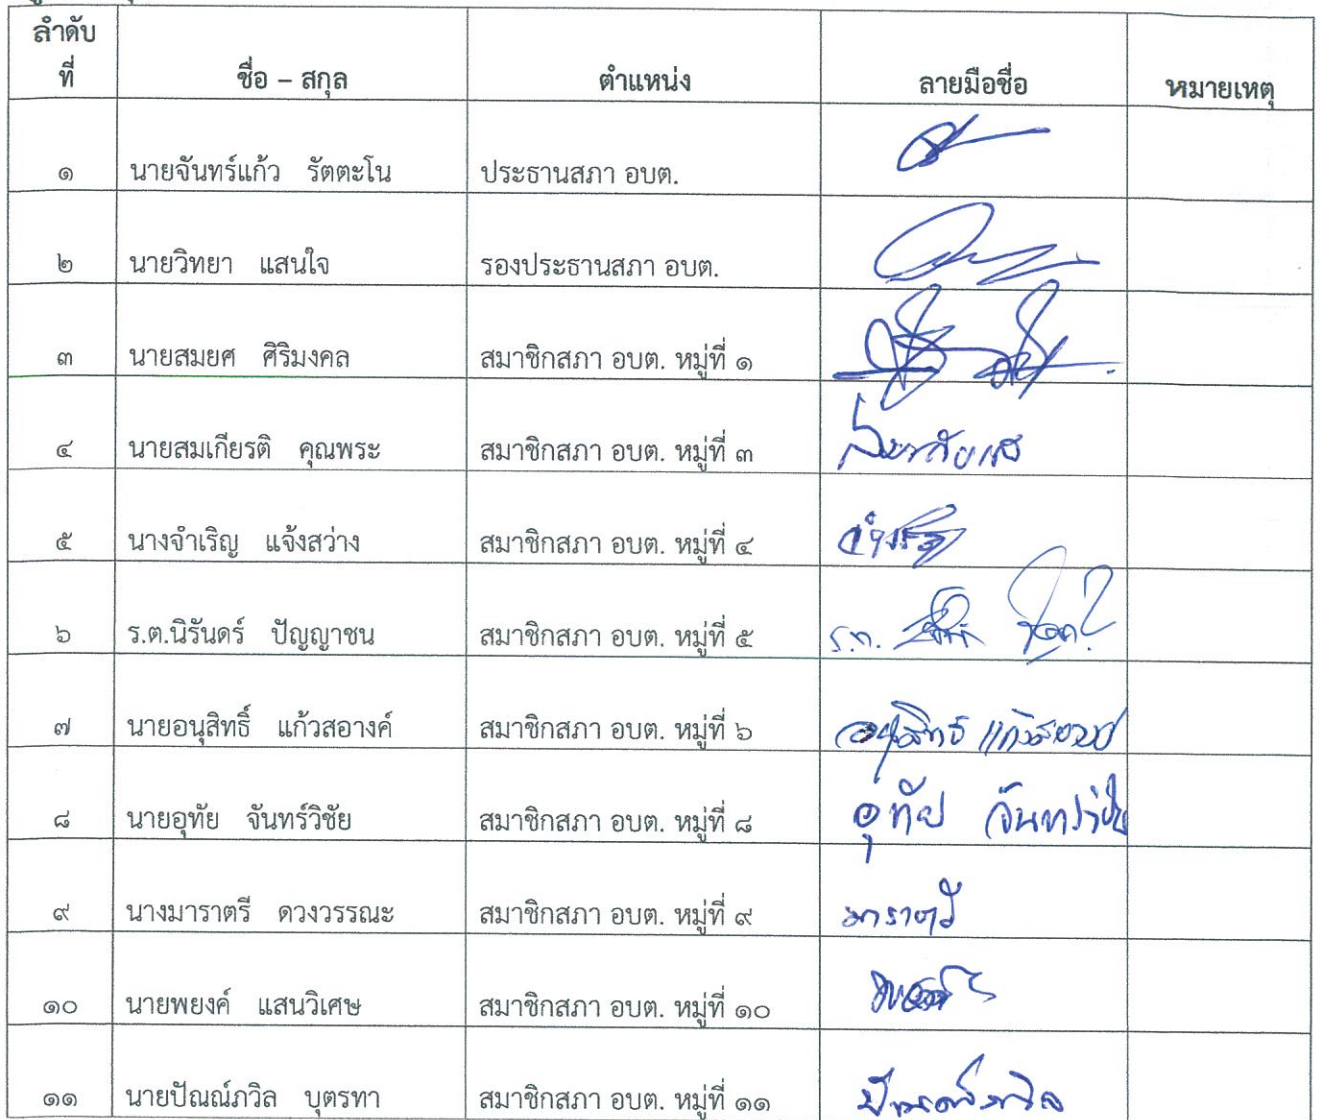 ลำดับ
ที่ ชื่อ – สกุล ตำแหน่ง ลายมือชื่อ หมายเหตุ
๑ นายจันทร์แก้ว รัตตะโน ประธานสภา อบต.
๒ นายวิทยา แสนใจ รองประธานสภา อบต.
๓ นายสมยศ ศิริมงคล สมาชิกสภา อบต. หมู่ที่ ๑
๔ นายสมเกียรติ คุณพระ สมาชิกสภา อบต. หมู่ที่ ๓
๕ นางจำเริญ แจ้งสว่าง สมาชิกสภา อบต. หมู่ที่ ๔
๖ ร.ต.นิรันดร์ ปัญญาชน สมาชิกสภา อบต. หมู่ที่ ๕ ร.ต.
๗ นายอนุสิทธิ์ แก้วสอางค์ สมาชิกสภา อบต. หมู่ที่ ๖
๘ นายอุทัย จันทร์วิชัย สมาชิกสภา อบต. หมู่ที่ ๘ อุทัย
๙ นางมาราตรี ดวงวรรณะ สมาชิกสภา อบต. หมู่ที่ ๙ มาราตรี
๑๐ นายพยงค์ แสนวิเศษ สมาชิกสภา อบต. หมู่ที่ ๑๐
๑๑ นายปัณณ์ภวิล บุตรทา สมาชิกสภา อบต. หมู่ที่ ๑๑